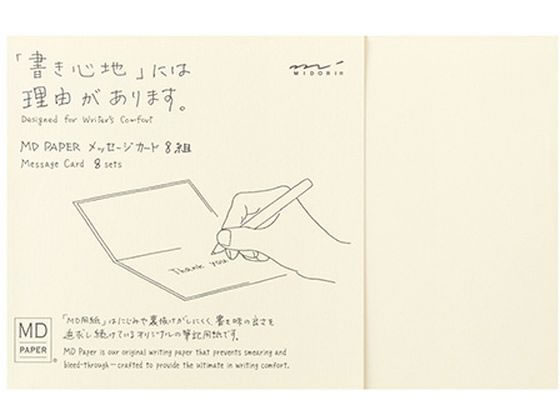 「書き心地」には
理由があります。
Designed for Writer's Comfort
MD PAPER メッセージカード 8組
Message Card 8 sets
midori
MIDORI®
Thank you
「MD用紙」はにじみや裏抜けがしにくく、書き味の良さを
追求し続けているオリジナルの筆記用紙です。
MD Paper is our original writing paper that prevents smearing and
bleed-through—crafted to provide the ultimate in writing comfort.
MD
PAPER
®